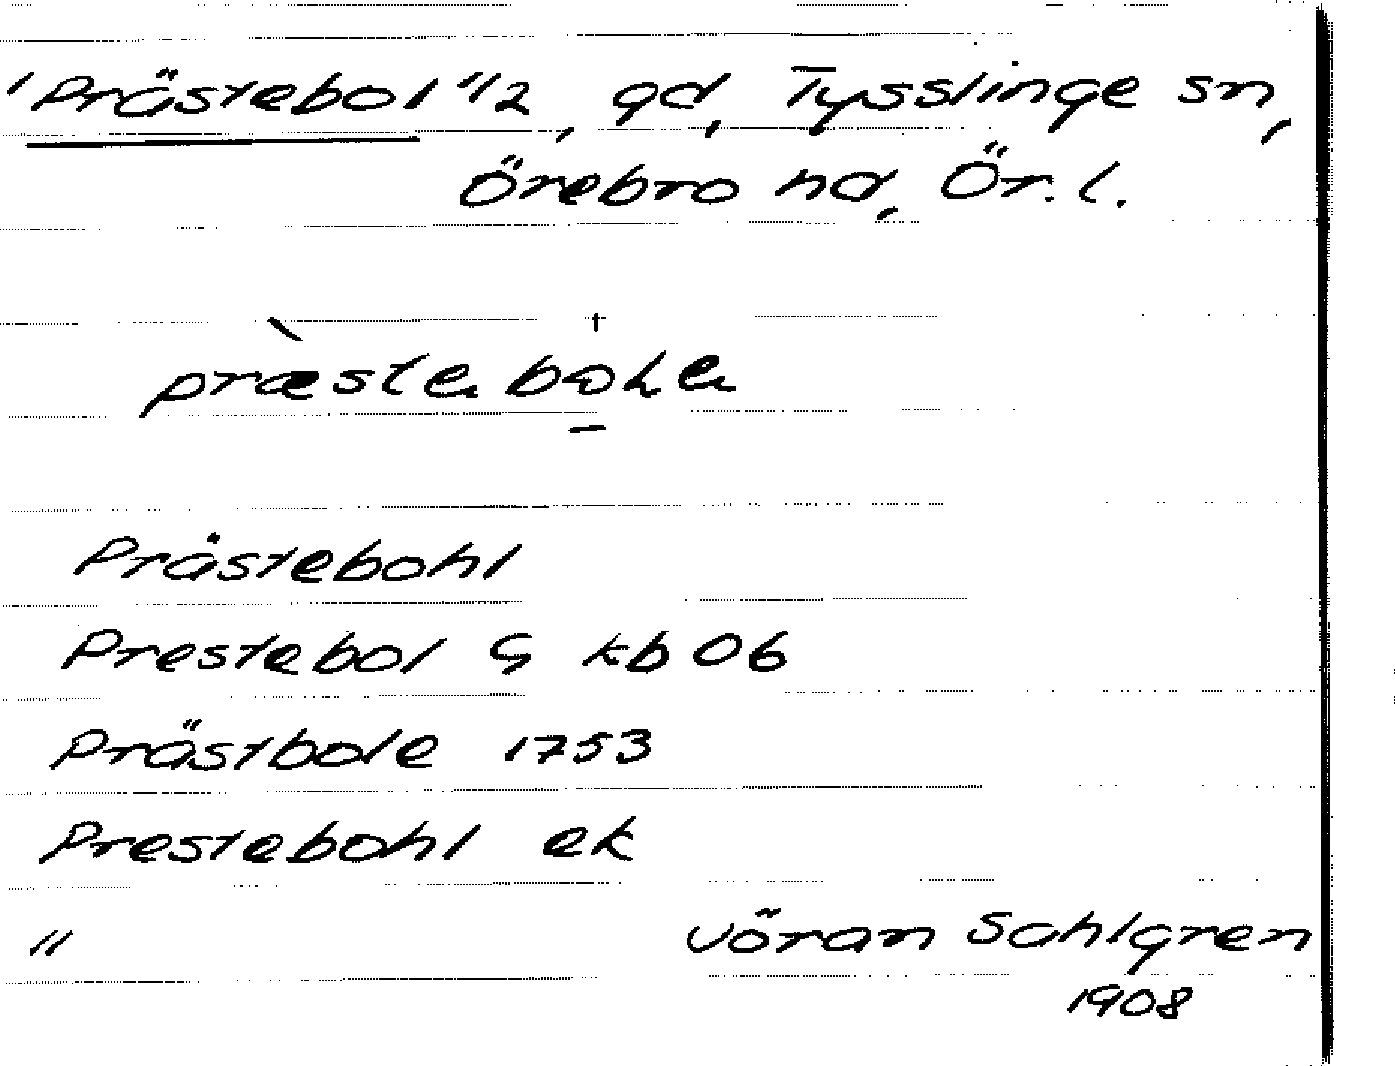 'Prästebol 1/2, gd, Tysslinge sn,
Örebro hd, Ör. l.
Prästebohl
Prestebol G kb 06
Prästbole 1753
Prestebohl ek
" Jöran Sahlgren
1908